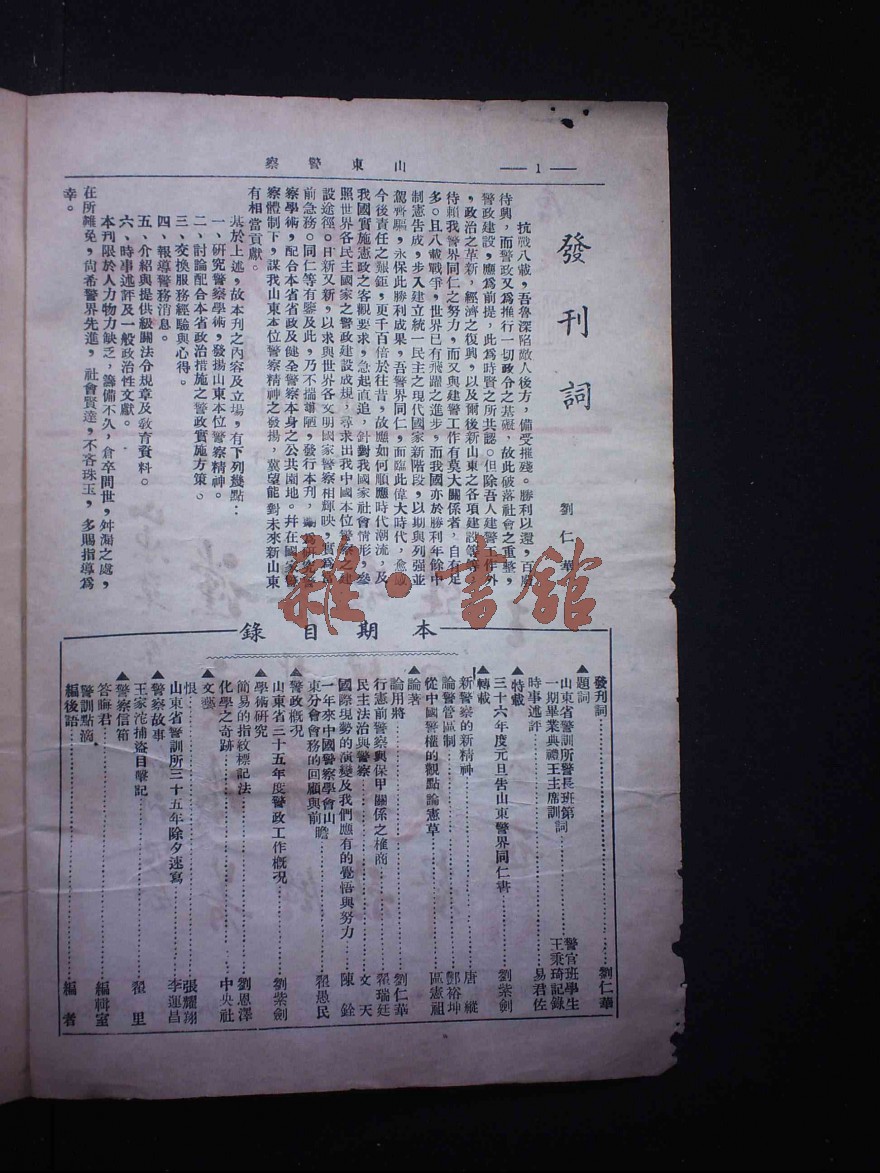 山東警察
— 1 —
發刊詞
劉仁華
抗戰八載，吾魯深陷敵人後方，備受摧殘。勝利以還，百廢
待興，而警政又爲推行一切政令之基礎，故此破落社會之重整，
警政建設，應爲前提，此爲時賢之所共認。但除吾人建警工作外
，政治之革新，經濟之復興，以及爾後新山東之各項建設等等
待賴我警界同仁之努力，而又與建警工作有莫大關係者，自有足
多。且八載戰爭，世界已有飛躍之進步，而我國亦於勝利年餘中
制憲告成，步入建立統一民主之現代國家新階段，以期與列强並
駕齊驅，永保此勝利成果，吾警界同仁，而臨此偉大時代，愈感
今後責任之艱鉅，更千百倍於往昔，故應如何順應時代潮流，及
我國實施憲政之客觀要求，急起直追，針對我國家社會情形，參
照世界各民主國家之警政建設成規，尋求出我中國本位警察之建
設途徑。日新又新，以求與世界各文明國家警察相輝映，實爲當
前急務。同仁等有鑒及此，乃不揣譾陋，發行本刊，期爲研究警
察學術，配合本省省政及健全警察本身之公共園地。并在國家警
察體制下，謀我山東本位警察精神之發揚，冀望能對未來新山東
有相當貢獻。
基於上述，故本刊之內容及立場，有下列幾點：
一、研究警察學術，發揚山東本位警察精神。
二、討論配合本省政治措施之警政實施方策。
三、交換服務經驗與心得。
四、報導警務消息。
五、介紹與提供級關法令規章及教育資料。
六、時事述評及一般政治性文獻。
本刊限於人力物力缺乏，籌備不久，倉卒問世，舛漏之處，
在所難免，尚希警界先進，社會賢達，不吝珠玉，多賜指導爲
幸。
本期目錄
發刊詞……劉仁華
▲題詞
山東省警訓所警長班第詞……警官班學生
一期畢業典禮王主席訓……王秉琦記錄
時事述評……易君佐
▲特載
三十六年度元旦告山東警界同仁書……劉紫劍
▲轉載
新警察的新精神……唐縱
論警管區制……鄧裕坤
從中國警權的觀點論憲草……區憲祖
▲論著
論用將……劉仁華
行憲前警察與保甲關係之權商……翟瑞廷
民主法治與警察……文天
國際現勢的演變及我們應有的覺悟與努力……陳銓
一年來中國警察學會山
東分會會務的回顧與前瞻……翟愚民
▲警政概況
山東省三十五年度警政工作概況……劉紫劍
▲學術研究
簡易的指紋標記法……劉恩澤
化學之奇跡……中央社
▲文藝
恨……張耀翔
山東省警訓所三十五年除夕速寫……李運昌
▲警察故事
王家沱捕盜目擊記……翟里
▲警察信箱
答晦君……編輯室
警訓點滴
編後語……編者
雜·書館